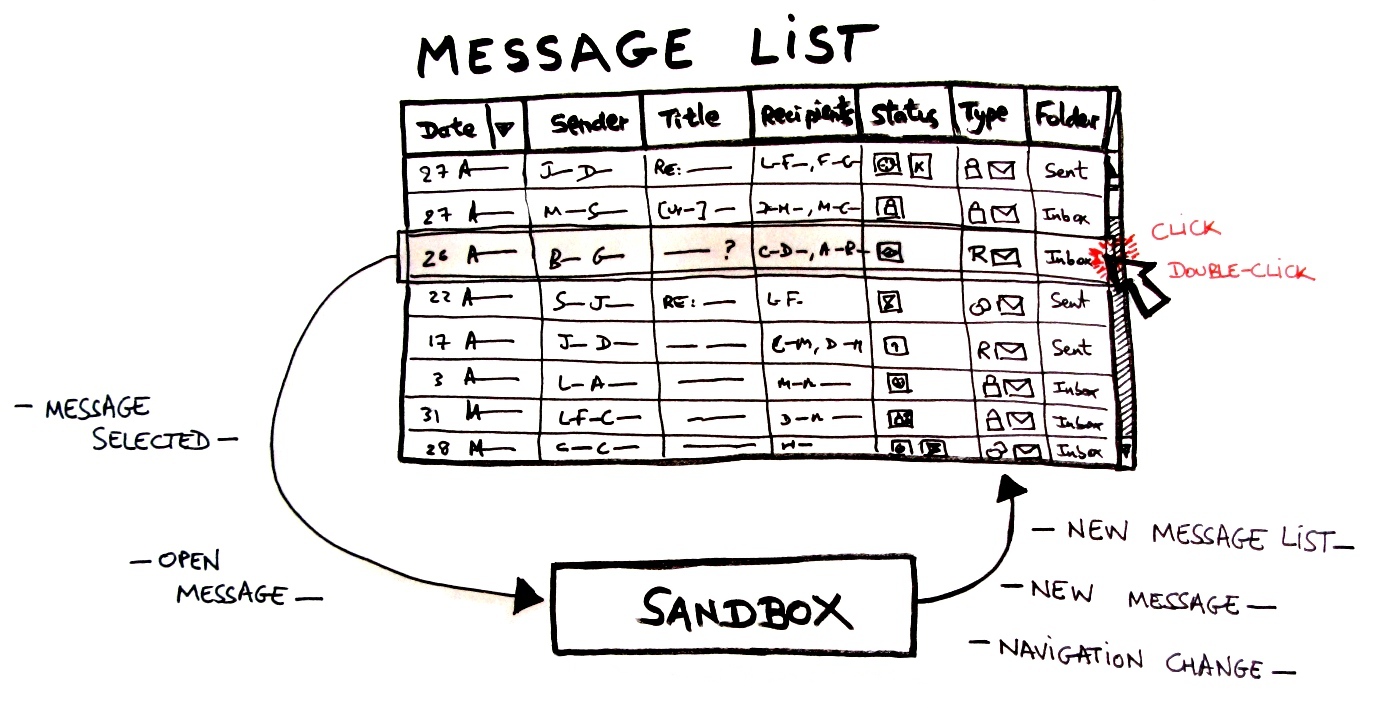 MESSAGE LIST
Date Sender Title Recipients Status Type Folder
27 A J D RE: L-F-, F-G K Sent
27 A M-S M-C- Inbox
26 A B- G- ? C-D-, A-R- R Inbox
22 A S-J- RE: L-F- Sent
17 A J- D- D-M R Sent
3 A L-A- M-A- Inbox
31 M L-F-C- D-A- Inbox
28 M Inbox
CLICK
DOUBLE-CLICK
- MESSAGE
SELECTED -
- OPEN
MESSAGE -
SANDBOX
- NEW MESSAGE LIST -
- NEW MESSAGE -
- NAVIGATION CHANGE -